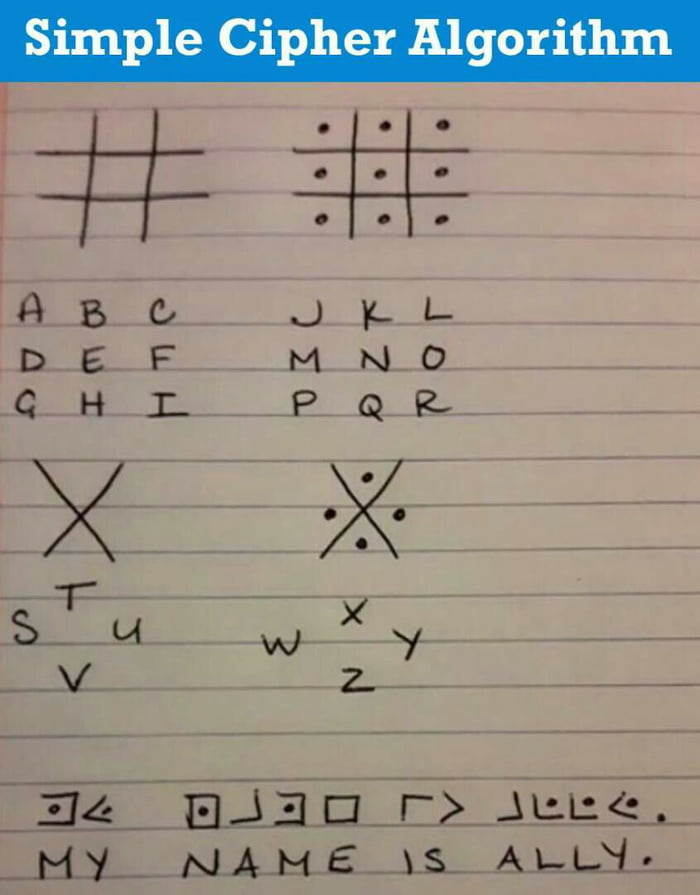 Simple Cipher Algorithm
A B C J K L
D E F M N O
G H I P Q R
T
S U
X
W Y
V Z
MY NAME IS ALLY.